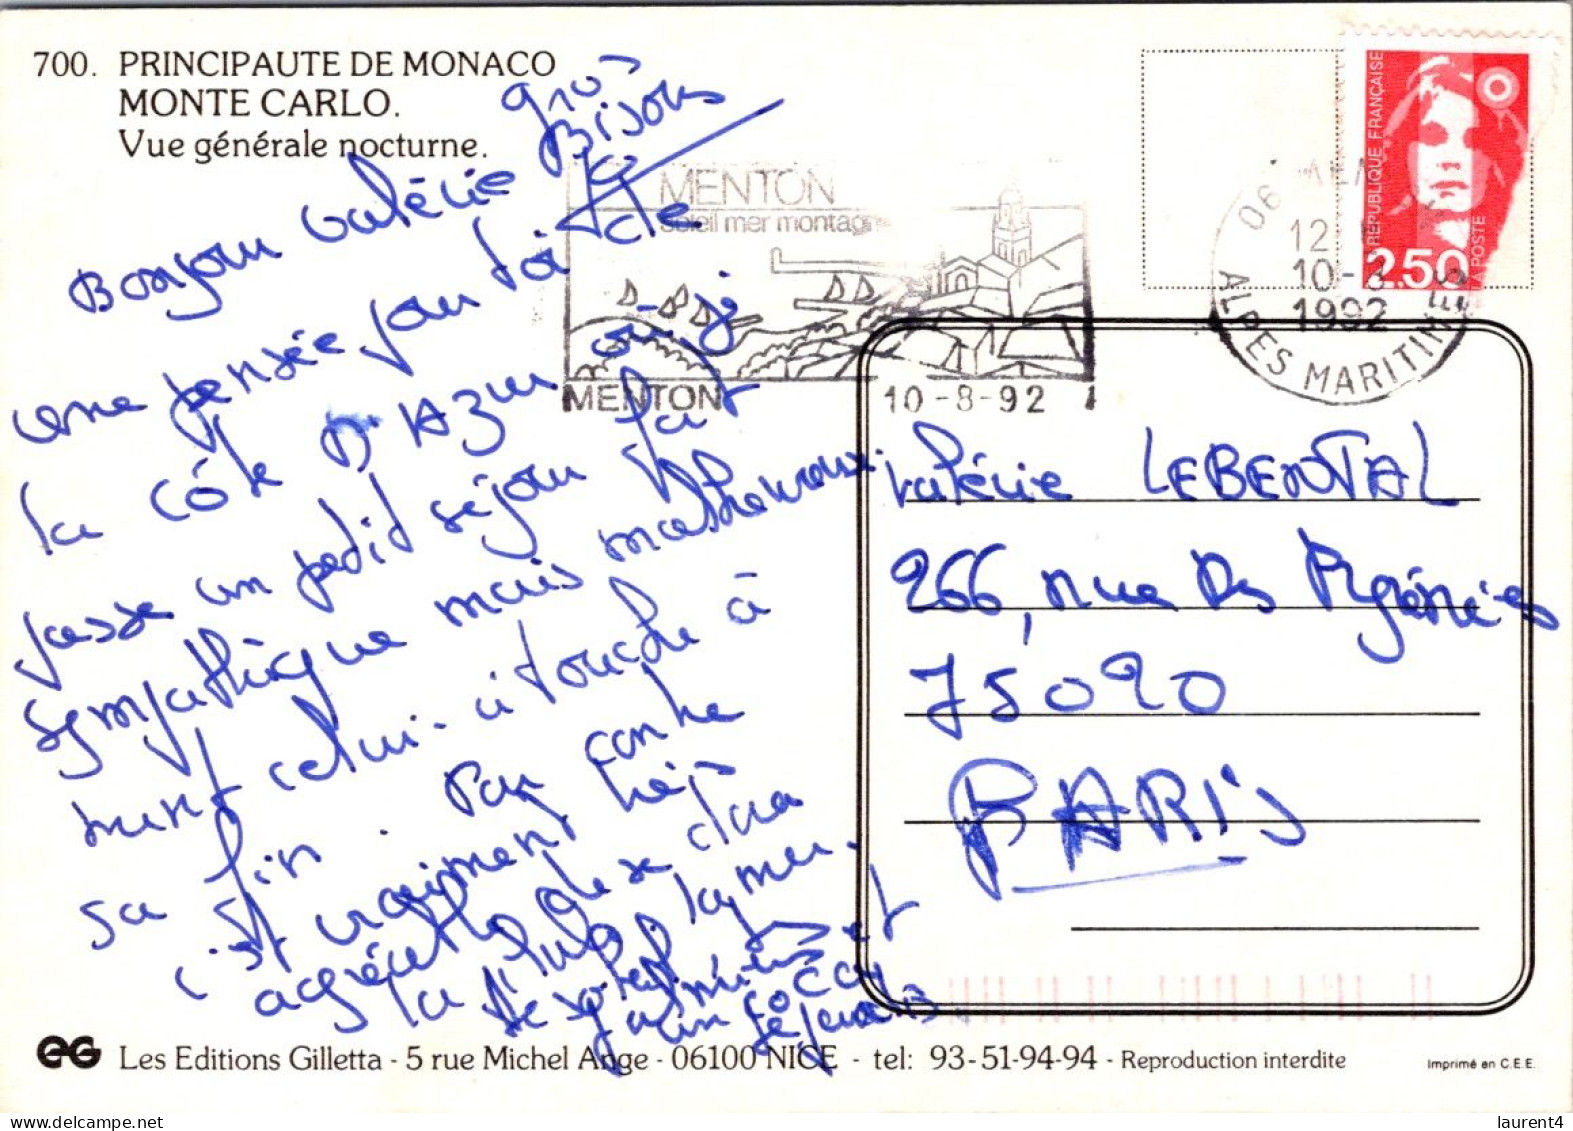 700. PRINCIPAUTE DE MONACO
MONTE CARLO.
Vue générale nocturne.
gros
Bisous
Bonjour Valérie
une pensée pour toi de
la côte D'AZur où j
passe un petit séjour fort
sympathique mais malheureuse
ment celui-ci touche à
sa fin. Par contre
c'est vraiment très
agréable de se
la
la mer.
MENTON
soleil mer montagne
MENTON
10-8-92
06 MEN
12
10-8
1992
ALPES MARITIMES
REPUBLIQUE FRANÇAISE
LA POSTE
2,50
Valérie LEBENTAL
266, rue Des Pyrénées
75020
PARIS
eG Les Editions Gilletta - 5 rue Michel Ange - 06100 NICE - tel: 93-51-94-94 - Reproduction interdite
Imprimé en C.E.E.
delcampe.net
laurent4